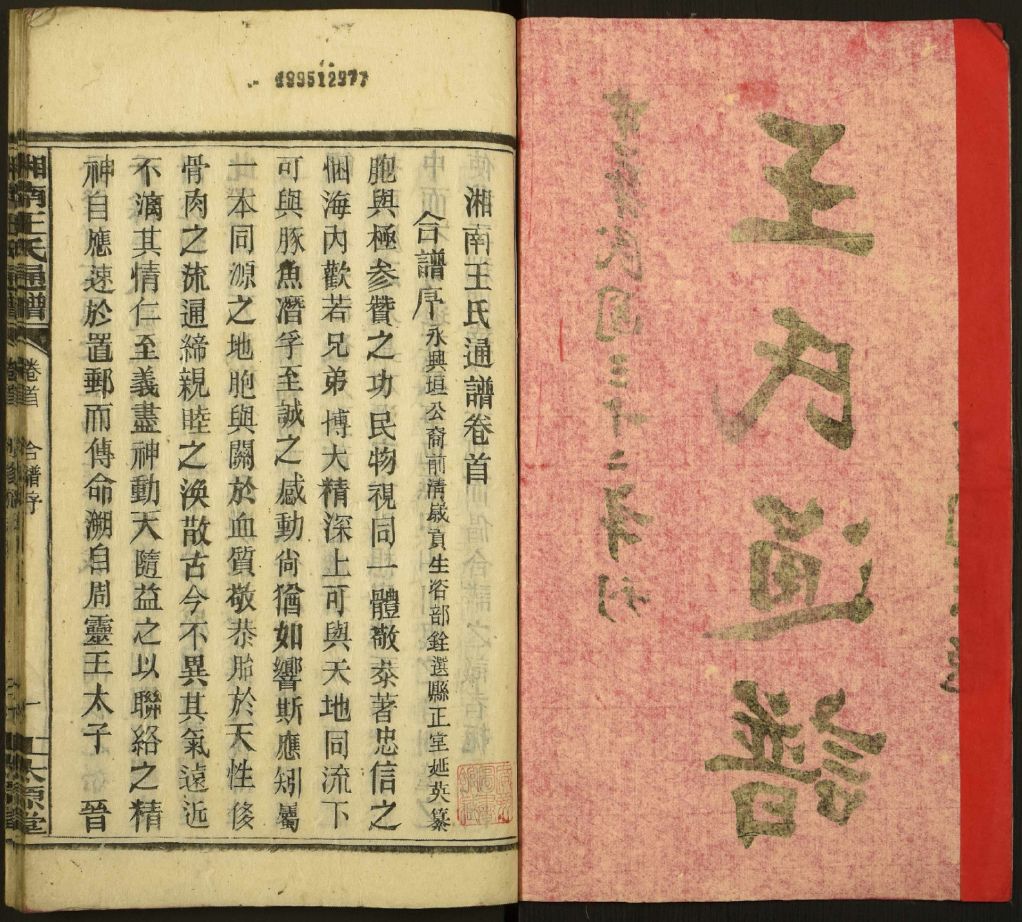 王氏通譜
中華民國三十二年刊
199512977
湘南王氏通譜卷首
合譜序 永興垣公裔前清歲貢生咨部銓選縣正堂延英纂
胞與極參贊之功民物視同一體敬恭著忠信之
悃海內歡若兄弟博大精深上可與天地同流下
可與豚魚潛孚至誠之感動尙猶如響斯應矧屬
一本同源之地胞與關於血質敬恭胎於天性後
骨肉之流通締親睦之渙散古今不異其氣遠近
不漓其情仁至義盡神動天隨益之以聯絡之精
神自應速於置郵而傳命溯自周靈王太子晉
湘南王氏通譜 卷首 合譜序 一 太原堂